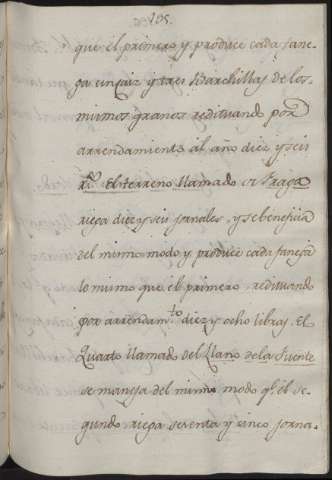 105.
que el primero y produce cada fane-
ga cinco y tres Barchillas de los
mismos granos redituando por
arrendamiento al año diez y seis
El terreno llamado Fraga
riega diez y seis jornales, y se beneficia
del mismo modo y produce cada fanega
lo mismo que el primero, redituando
por arrendam.to diez y ocho libras. El
Quarto llamado del Llano de la Fuente
se maneja del mismo modo q.e el se-
gundo riega setenta y cinco jorna-